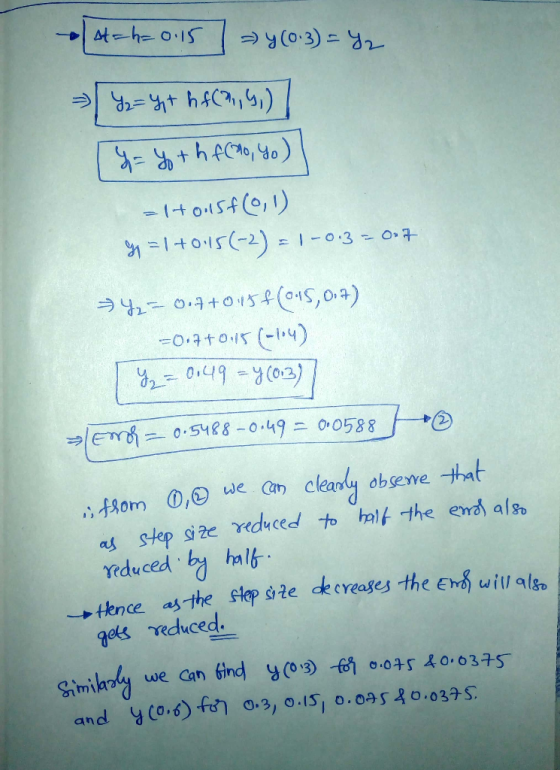 → Δt = h = 0.15 ⇒ y(0.3) = y₂
⇒ y₂ = y₁ + hf(x₁, y₁)
y₁ = y₀ + hf(x₀, y₀)
= 1 + 0.15f(0, 1)
y₁ = 1 + 0.15(-2) = 1 - 0.3 = 0.7
⇒ y₂ = 0.7 + 0.15 f(0.15, 0.7)
= 0.7 + 0.15 (-1.4)
y₂ = 0.49 = y(0.3)
⇒ Error = 0.5488 - 0.49 = 0.0588 → ②
∴ from ①, ② we can clearly observe that
as step size reduced to half the error also
reduced by half.
→ Hence as the step size decreases the Error will also
gets reduced.
Similarly we can find y(0.3) for 0.075 & 0.0375
and y(0.6) for 0.3, 0.15, 0.075 & 0.0375.